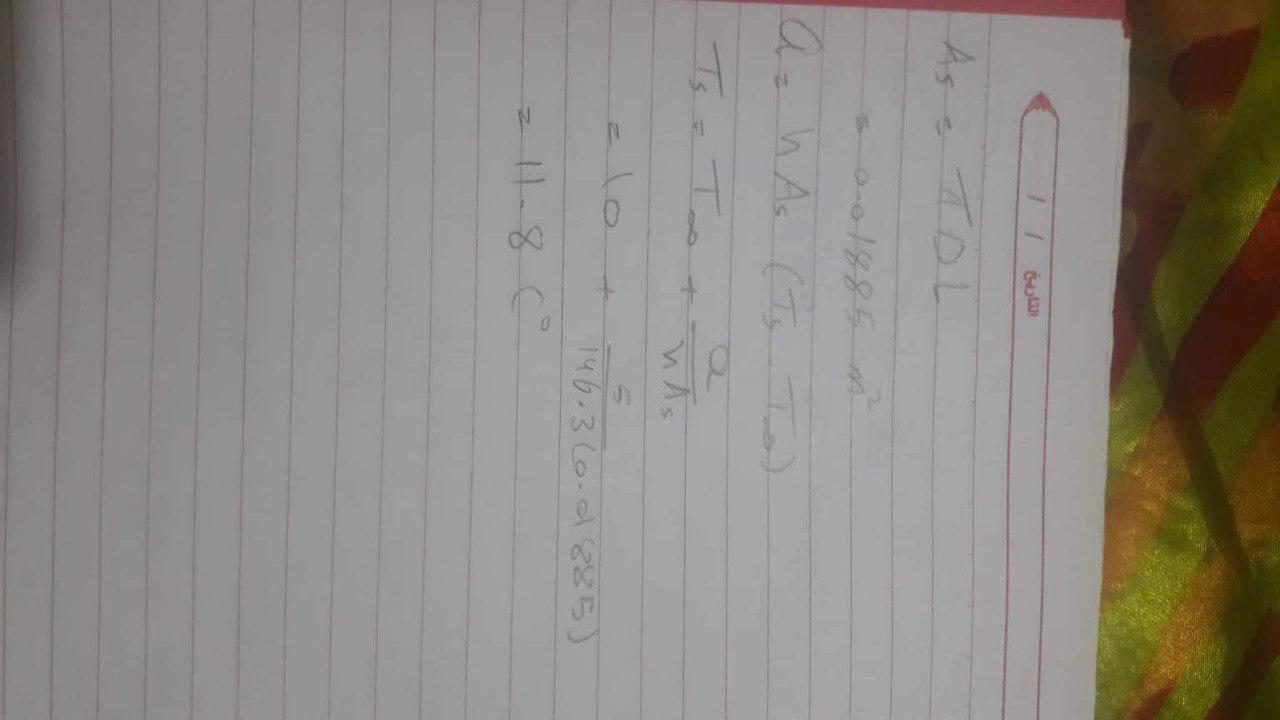 التاريخ / /
As = πDL
= 0.01885 m²
Q = hAs (Ts T∞)
Ts = T∞ + Q/hAs
= 10 + 5/146.3(0.01885)
= 11.8 C°